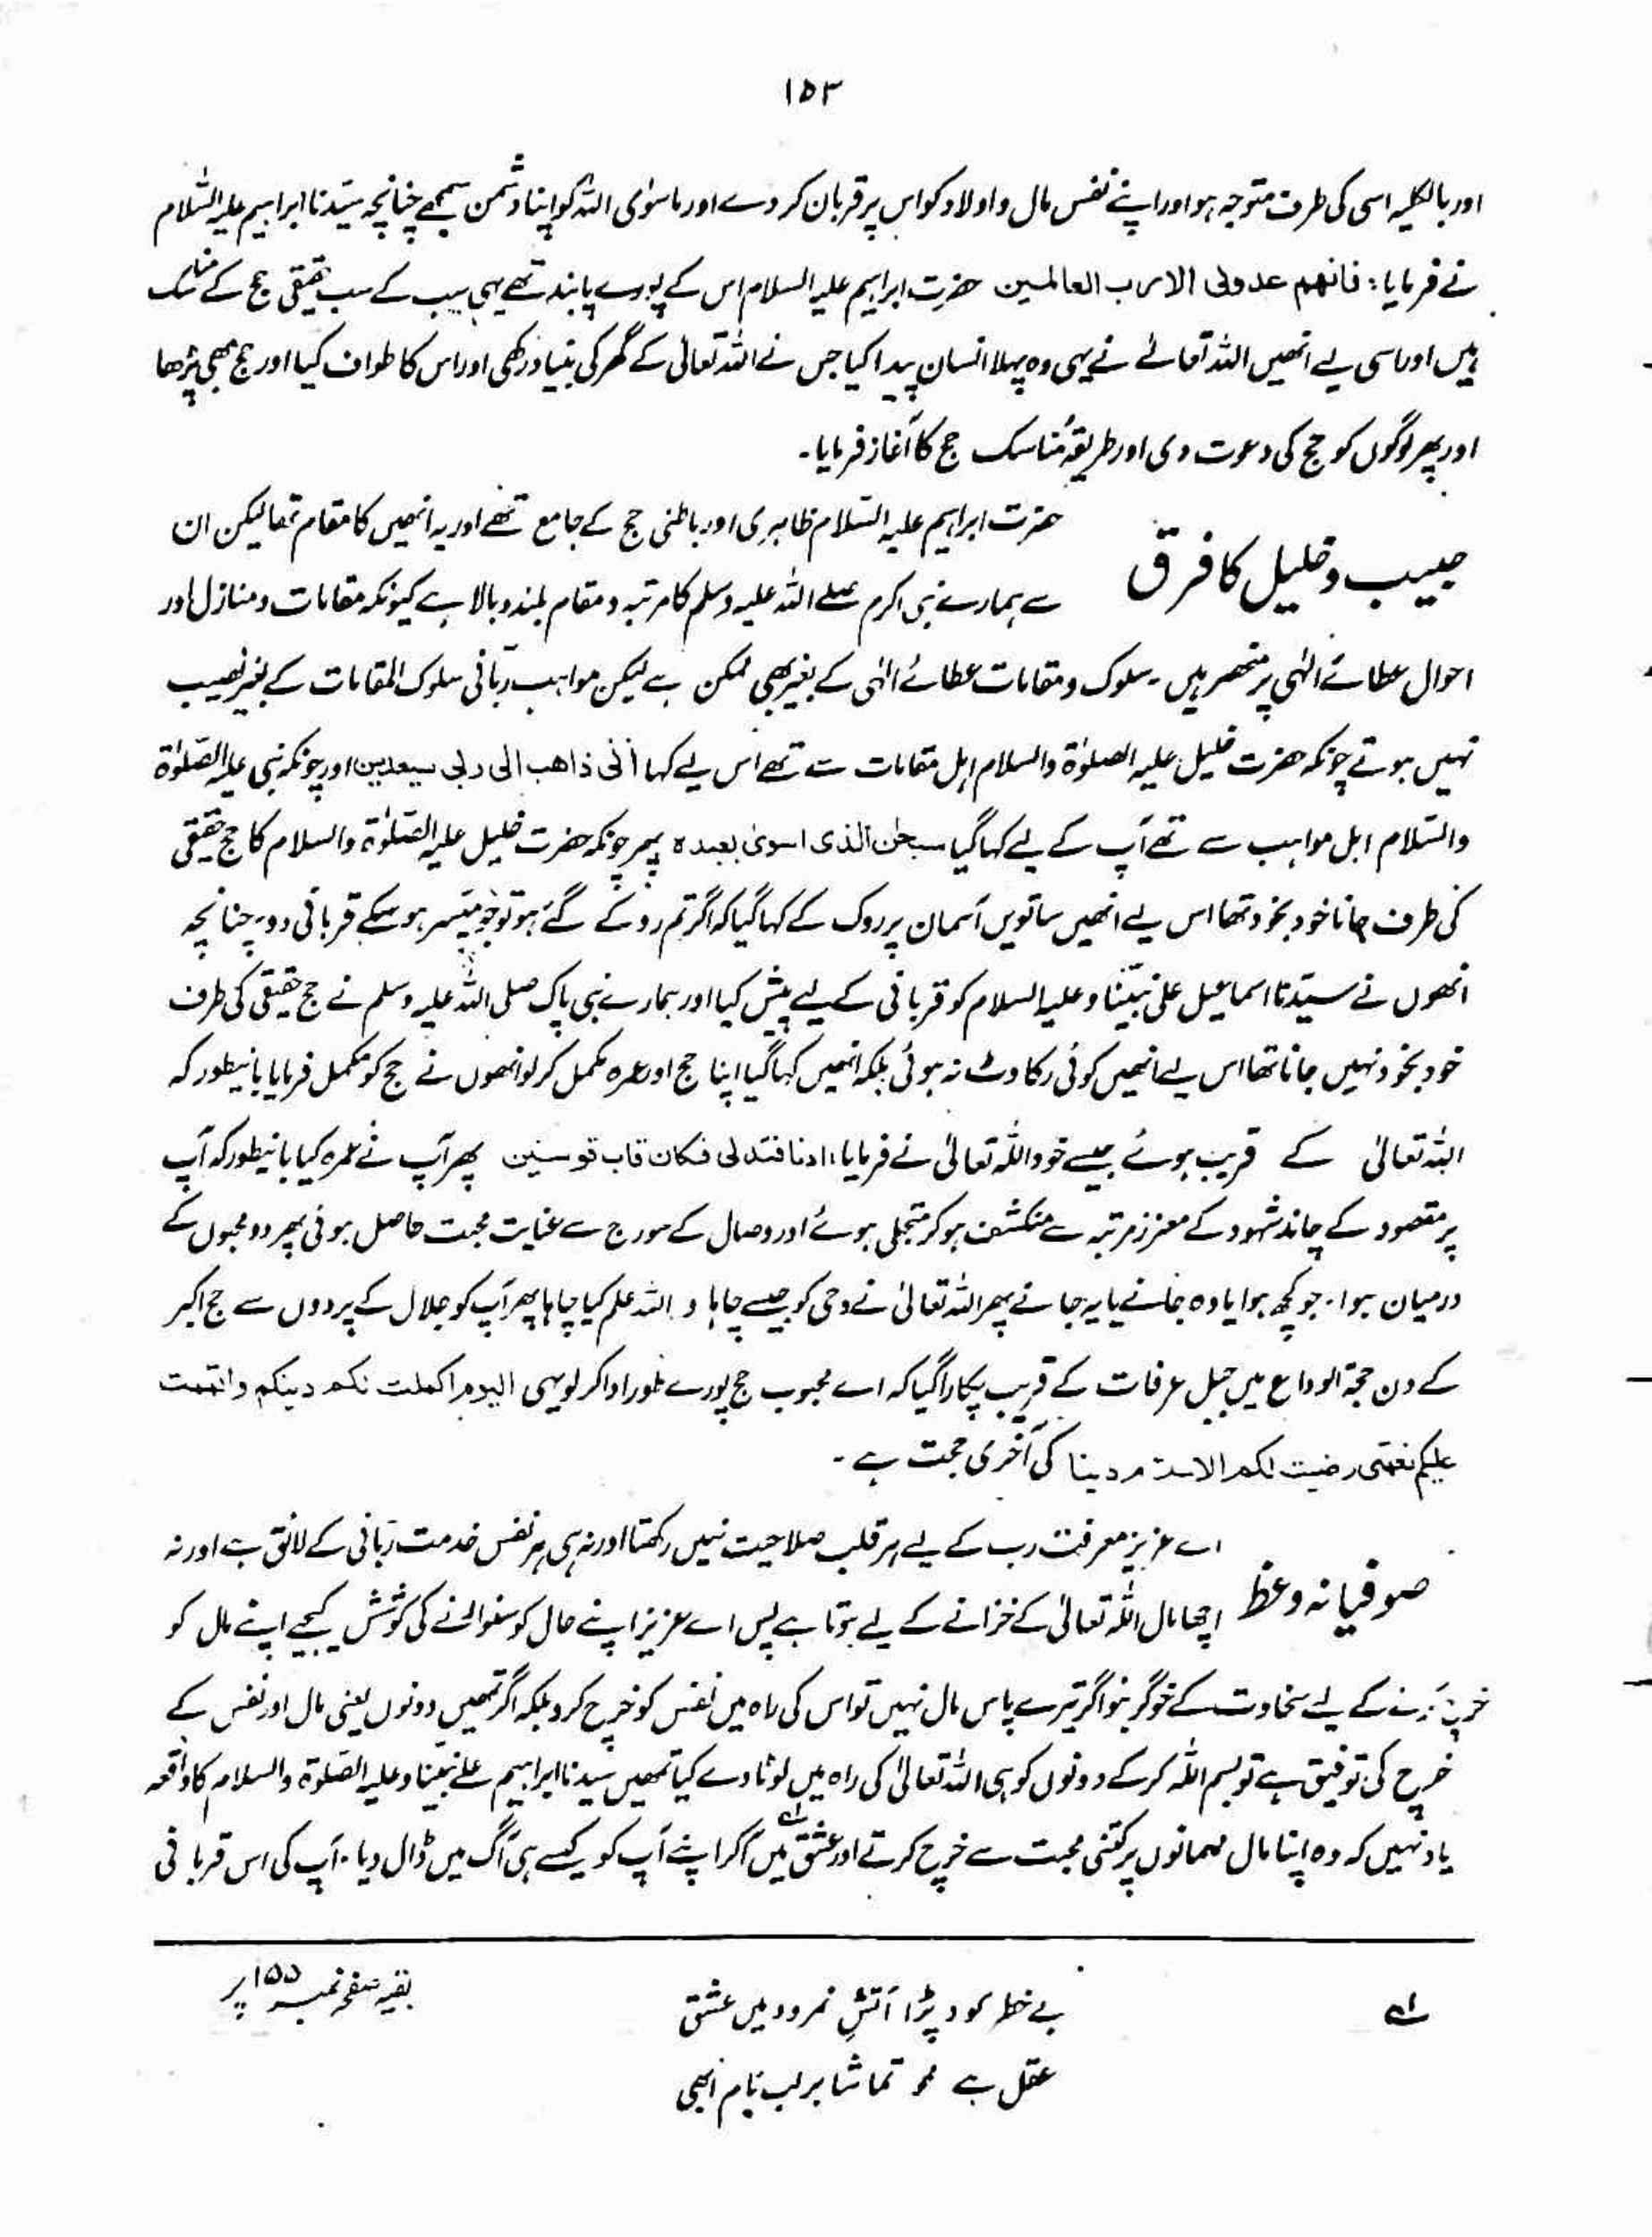 ۱۵۳
اور بالکلیہ اسی کی طرف متوجہ ہو اور اپنے نفس مال و اولاد کو اس پر قربان کر دے اور ماسوٰی اللہ کو اپنا دشمن سمجھے چنانچہ سیّدنا ابراہیم علیہ السّلام
نے فرمایا: فانھم عدولی الا رب العالمین حضرت ابراہیم علیہ السلام اس کے پورے پابند تھے یہی سب کے سب حقیقی حج کے مناسک
ہیں اور اسی لیے انھیں اللہ تعالےٰ نے یہی وہ پہلا انسان پیدا کیا جس نے اللہ تعالیٰ کے گھر کی بنیاد رکھی اور اس کا طواف کیا اور حج بھی پڑھا
اور پھر لوگوں کو حج کی دعوت دی اور طریقۂ مناسک حج کا آغاز فرمایا۔
حبیب و خلیل کا فرق
حضرت ابراہیم علیہ السّلام ظاہری اور باطنی حج کے جامع تھے اور یہ انھیں کا مقام تھا لیکن ان
سے ہمارے نبی اکرم صلے اللہ علیہ وسلم کا مرتبہ و مقام بلند و بالا ہے کیونکہ مقامات و منازل اور
احوال عطائے الٰہی پر منحصر ہیں۔ سلوک و مقامات عطائے الٰہی کے بغیر بھی ممکن ہے لیکن مواہب ربّانی سلوک المقامات کے بغیر نصیب
نہیں ہوتے چونکہ حضرت خلیل علیہ الصلوٰۃ والسلام اہل مقامات سے تھے اس لیے کہا انی ذاھب الی ربی سیھدین اور چونکہ نبی علیہ الصّلوٰۃ
والسّلام اہل مواہب سے تھے آپ کے لیے کہا گیا سبحٰن الذی اسریٰ بعبدہ پھر چونکہ حضرت خلیل علیہ الصّلوٰۃ والسلام کا حج حقیقی
کی طرف جانا خود بخود تھا اس لیے انھیں ساتویں آسمان پر روک کے کہا گیا کہ اگر تم روکے گئے ہو تو جو میّسر ہو سکے قربانی دو۔ چنانچہ
انھوں نے سیّدنا اسماعیل علیٰ نبیّنا و علیہ السلام کو قربانی کے لیے پیش کیا اور ہمارے نبی پاک صلی اللہ علیہ وسلم نے حج حقیقی کی طرف
خود بخود نہیں جانا تھا اس لیے انھیں کوئی رکاوٹ نہ ہوئی بلکہ انھیں کہا گیا اپنا حج اور عمرہ مکمل کر لو انھوں نے حج کو مکمل فرمایا بانیطور کہ
اللہ تعالیٰ کے قریب ہوئے جیسے خود اللہ تعالیٰ نے فرمایا: ادنا فتدلی فکان قاب قوسین پھر آپ نے عمرہ کیا بانیطور کہ آپ
پر مقصود کے چاند شہود کے معزز مرتبہ سے منکشف ہو کر متجلی ہوئے اور وصال کے سورج سے غنایت محبت حاصل ہوئی پھر دو محبوں کے
درمیان ہوا۔ جو کچھ ہوا یا وہ جانے یا یہ جانے پھر اللہ تعالیٰ نے وحی کو جیسے چاہا و اللہ علم کیا چاہا پھر آپ کو جلال کے پردوں سے حج اکبر
کے دن حجۃ الوداع میں جبل عرفات کے قریب پکارا گیا کہ اے محبوب حج پورے طور ادا کر لو یہی الیوم اکملت لکم دینکم واتممت
علیکم نعمتی رضیت لکم الاسلام دینا کی آخری حجت ہے۔
صوفیانہ وعظ
اے عزیز معرفت رب کے لیے ہر قلب صلاحیت نہیں رکھتا اور نہ ہی ہر نفس خدمت ربّانی کے لائق ہے اور نہ
اچھا مال اللہ تعالیٰ کے خزانے کے لیے ہوتا ہے پس اے عزیز اپنے حال کو سنوارنے کی کوشش کیجیے اپنے مال کو
خرچ کرنے کے لیے سخاوت کے خوگر بنو اگر تیرے پاس مال نہیں تو اس کی راہ میں نفس کو خرچ کر و بلکہ اگر تمھیں دونوں یعنی مال اور نفس کے
خرچ کی توفیق ہے تو بسم اللہ کر کے دونوں کو ہی اللہ تعالیٰ کی راہ میں لوٹا دے کیا تمھیں سیدنا ابراہیم علےٰ نبیّنا و علیہ الصّلوٰۃ والسلام کا واقعہ
یاد نہیں کہ وہ اپنا مال مہمانوں پر کتنی محبت سے خرچ کرتے اور عشق لے میں آ کر اپنے آپ کو کیسے ہی آگ میں ڈال دیا۔ آپ کی اس قربانی
لے بے خطر کود پڑا آتشِ نمرود میں عشق بقیہ صفحہ نمبر ۱۵۵ پر
عقل ہے محوِ تماشا برلب بام ابھی